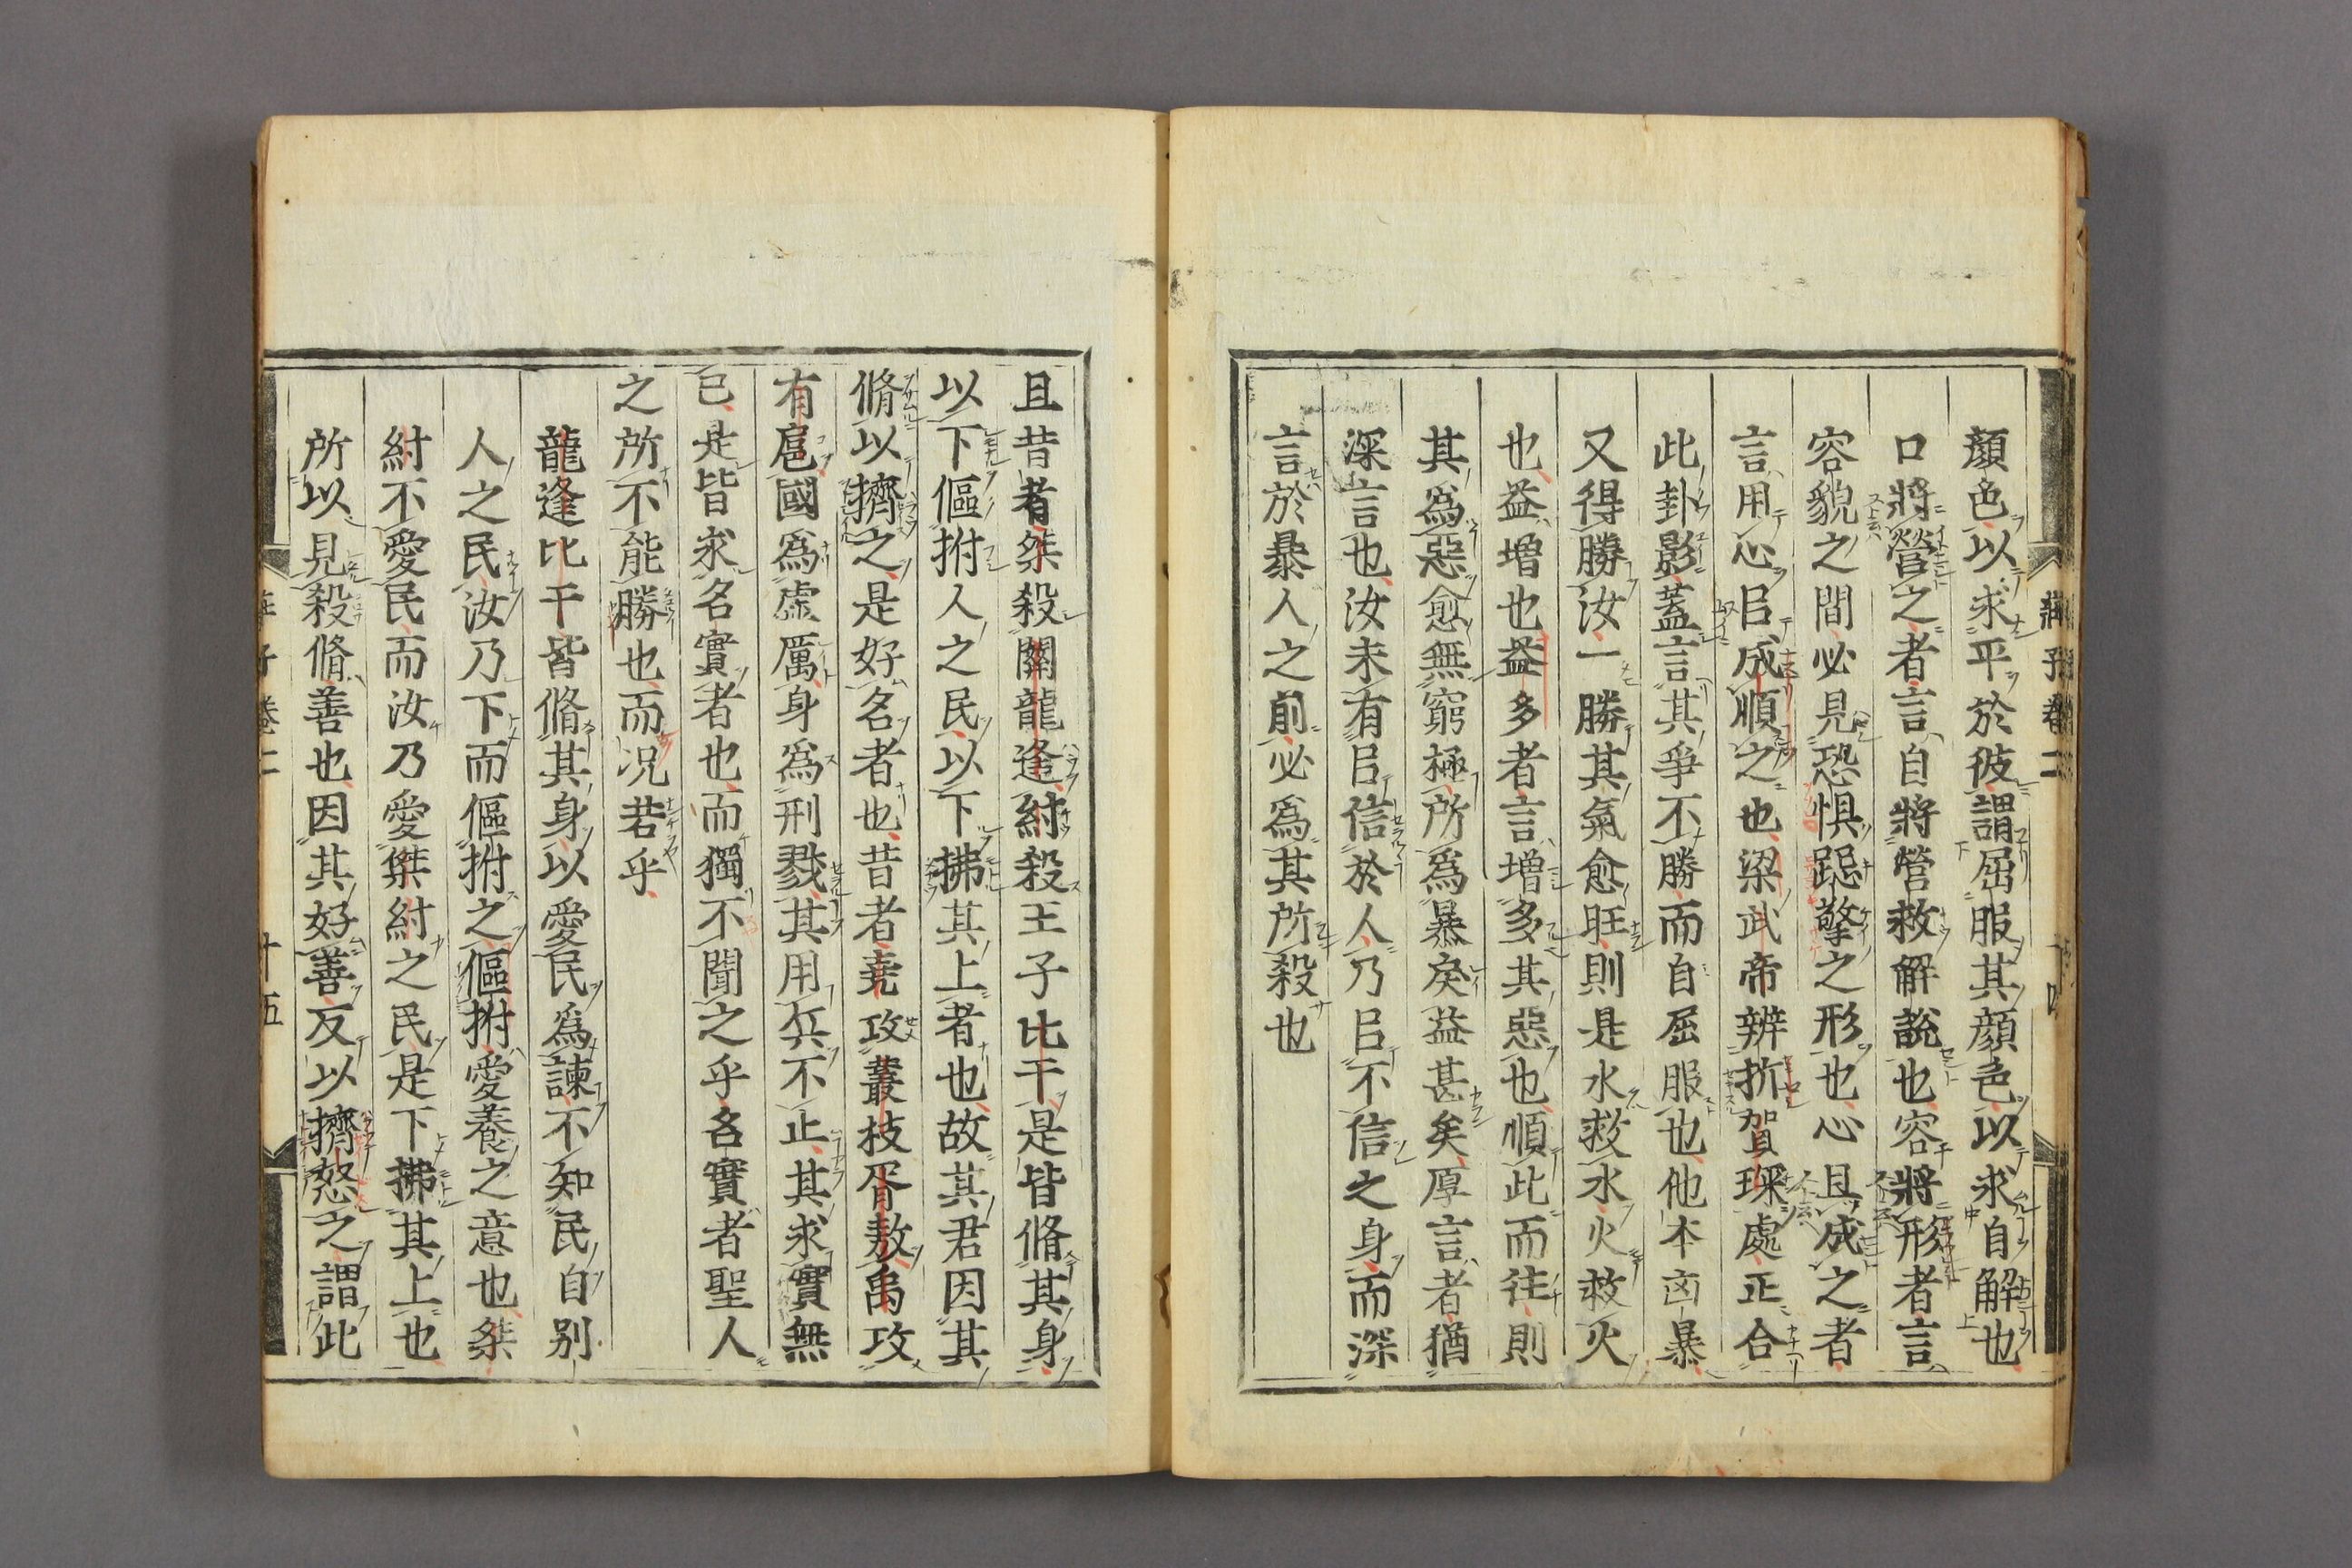 顏色以求平於彼謂屈服其顏色以求自解也
口將營之者言自將營救解說也容將形者言
容貌之間必見恐惧跽擎之形也心且成之者
言用心㠯成順之也梁武帝辨折賀琛處正合
此卦影蓋言其爭不勝而自屈服也他本凶暴
又得勝汝一勝其氣愈旺則是水救水火救火
也益增也益多者言增多其惡也順此而往則
其爲惡愈無窮極所爲暴戾益甚矣厚言者猶
深言也汝未有㠯信於人乃㠯不信之身而深
言於暴人之前必爲其所殺也
且昔者桀殺關龍逢紂殺王子比干是皆脩其身
以下傴拊人之民以下拂其上者也故其君因其
脩以擠之是好名者也昔者堯攻叢枝胥敖禹攻
有扈國爲虛厲身爲刑戮其用兵不止其求實無
已是皆求名實者也而獨不聞之乎名實者聖人
之所不能勝也而況若乎
龍逢比干皆脩其身以愛民爲諫不知民自别
人之民汝乃下而傴拊之傴拊愛養之意也桀
紂不愛民而汝乃愛桀紂之民是下拂其上也
所以見殺脩善也因其好善反以擠怒之謂此